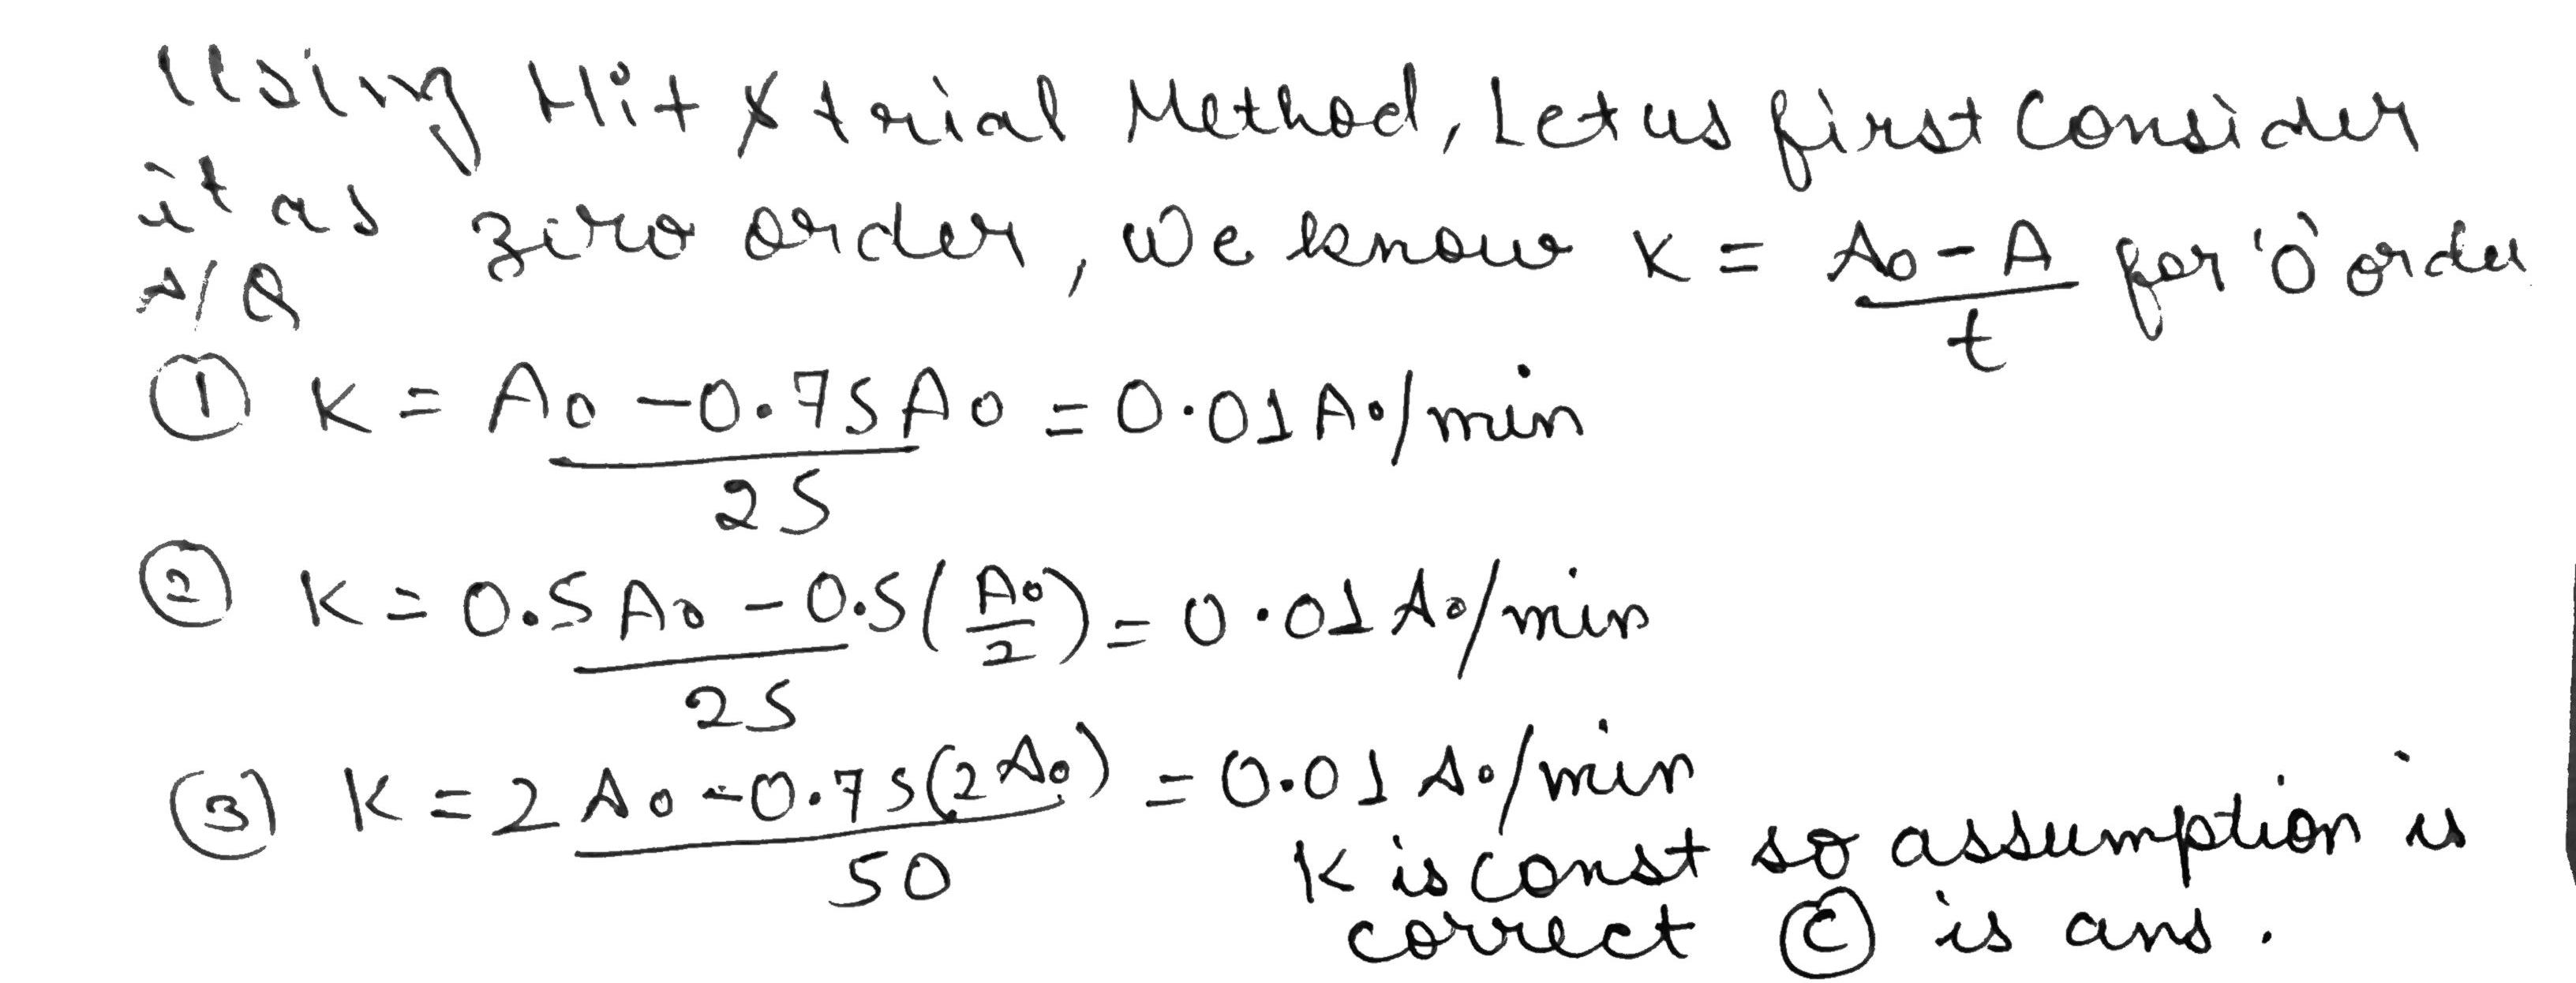 Using Hit & trial Method, Let us first Consider
it as zero order, We know K = A0 - A / t for '0' order
A/Q
① K = A0 - 0.75 A0 / 25 = 0.01 A0/min
② K = 0.5 A0 - 0.5(A0/2) / 25 = 0.01 A0/min
③ K = 2 A0 - 0.75(2 A0) / 50 = 0.01 A0/min
K is const so assumption is
correct Ⓒ is ans.